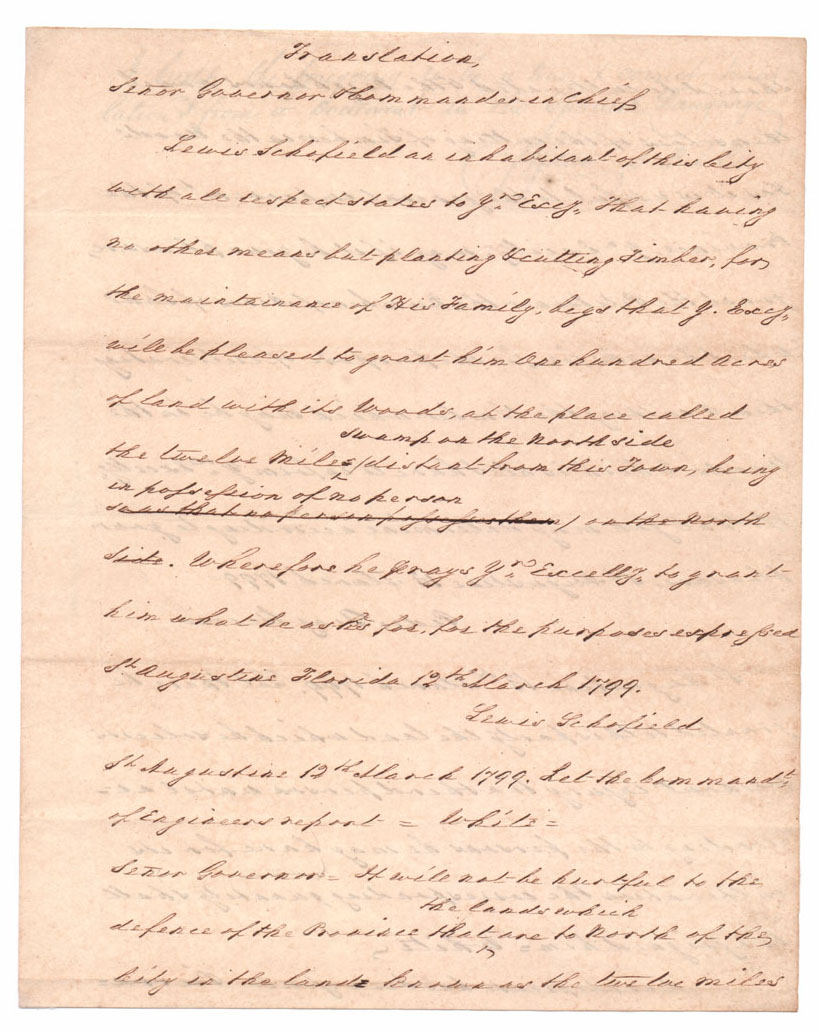 Translation,
Senor Governor & Commander in Chief
Lewis Schofield an inhabitant of this City
with all respect states to Yr. Excy. That having
no other means but planting & cutting Timber, for
the maintainance of His Family, begs that Y. Excy.
will be pleased to grant him One hundred Acres
of land with its Woods, at the place called
swamp on the North side
the twelve Miles (distant from this Town, being
in possession of no person
so as that no person possesses them) on the North
side. Wherefore he prays Yr. Excelly. to grant
him what he asks for, for the purposes expressed
St. Augustine Florida 12th March 1799.
Lewis Schofield
St. Augustine 12th March 1799. Let the Commandt.
of Engineers report = White =
Senor Governor = It will not be hurtful to the
the lands which
defence of the Province that are to North of the
City in the land = known as the twelve miles